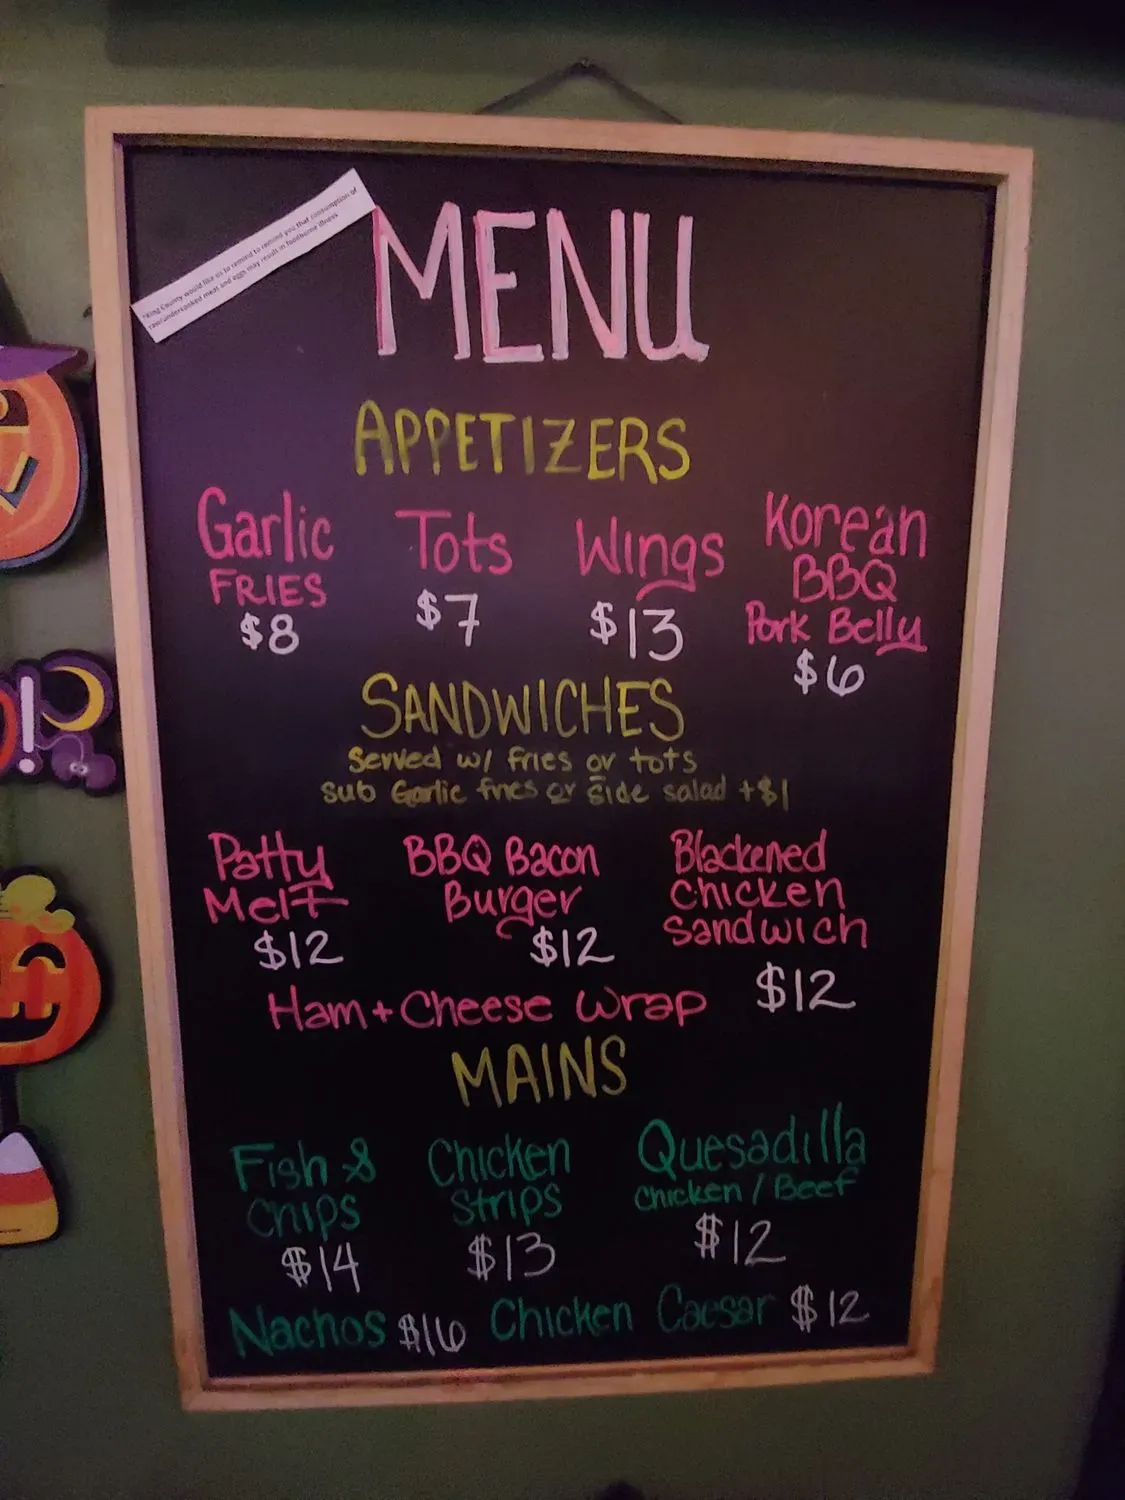 *King County would like us to remind to remind you that consumption of
raw/undercooked meat and eggs may result in foodborne illness
MENU
APPETIZERS
Garlic
FRIES
$8
Tots
$7
Wings
$13
Korean
BBQ
Pork Belly
$6
SANDWICHES
Served w/ fries or tots
sub Garlic fries or side salad +$1
Patty
Melt
$12
BBQ Bacon
Burger
$12
Blackened
Chicken
Sandwich
$12
Ham + Cheese Wrap
MAINS
Fish &
Chips
$14
Chicken
Strips
$13
Quesadilla
Chicken / Beef
$12
Nachos $16
Chicken Caesar $12